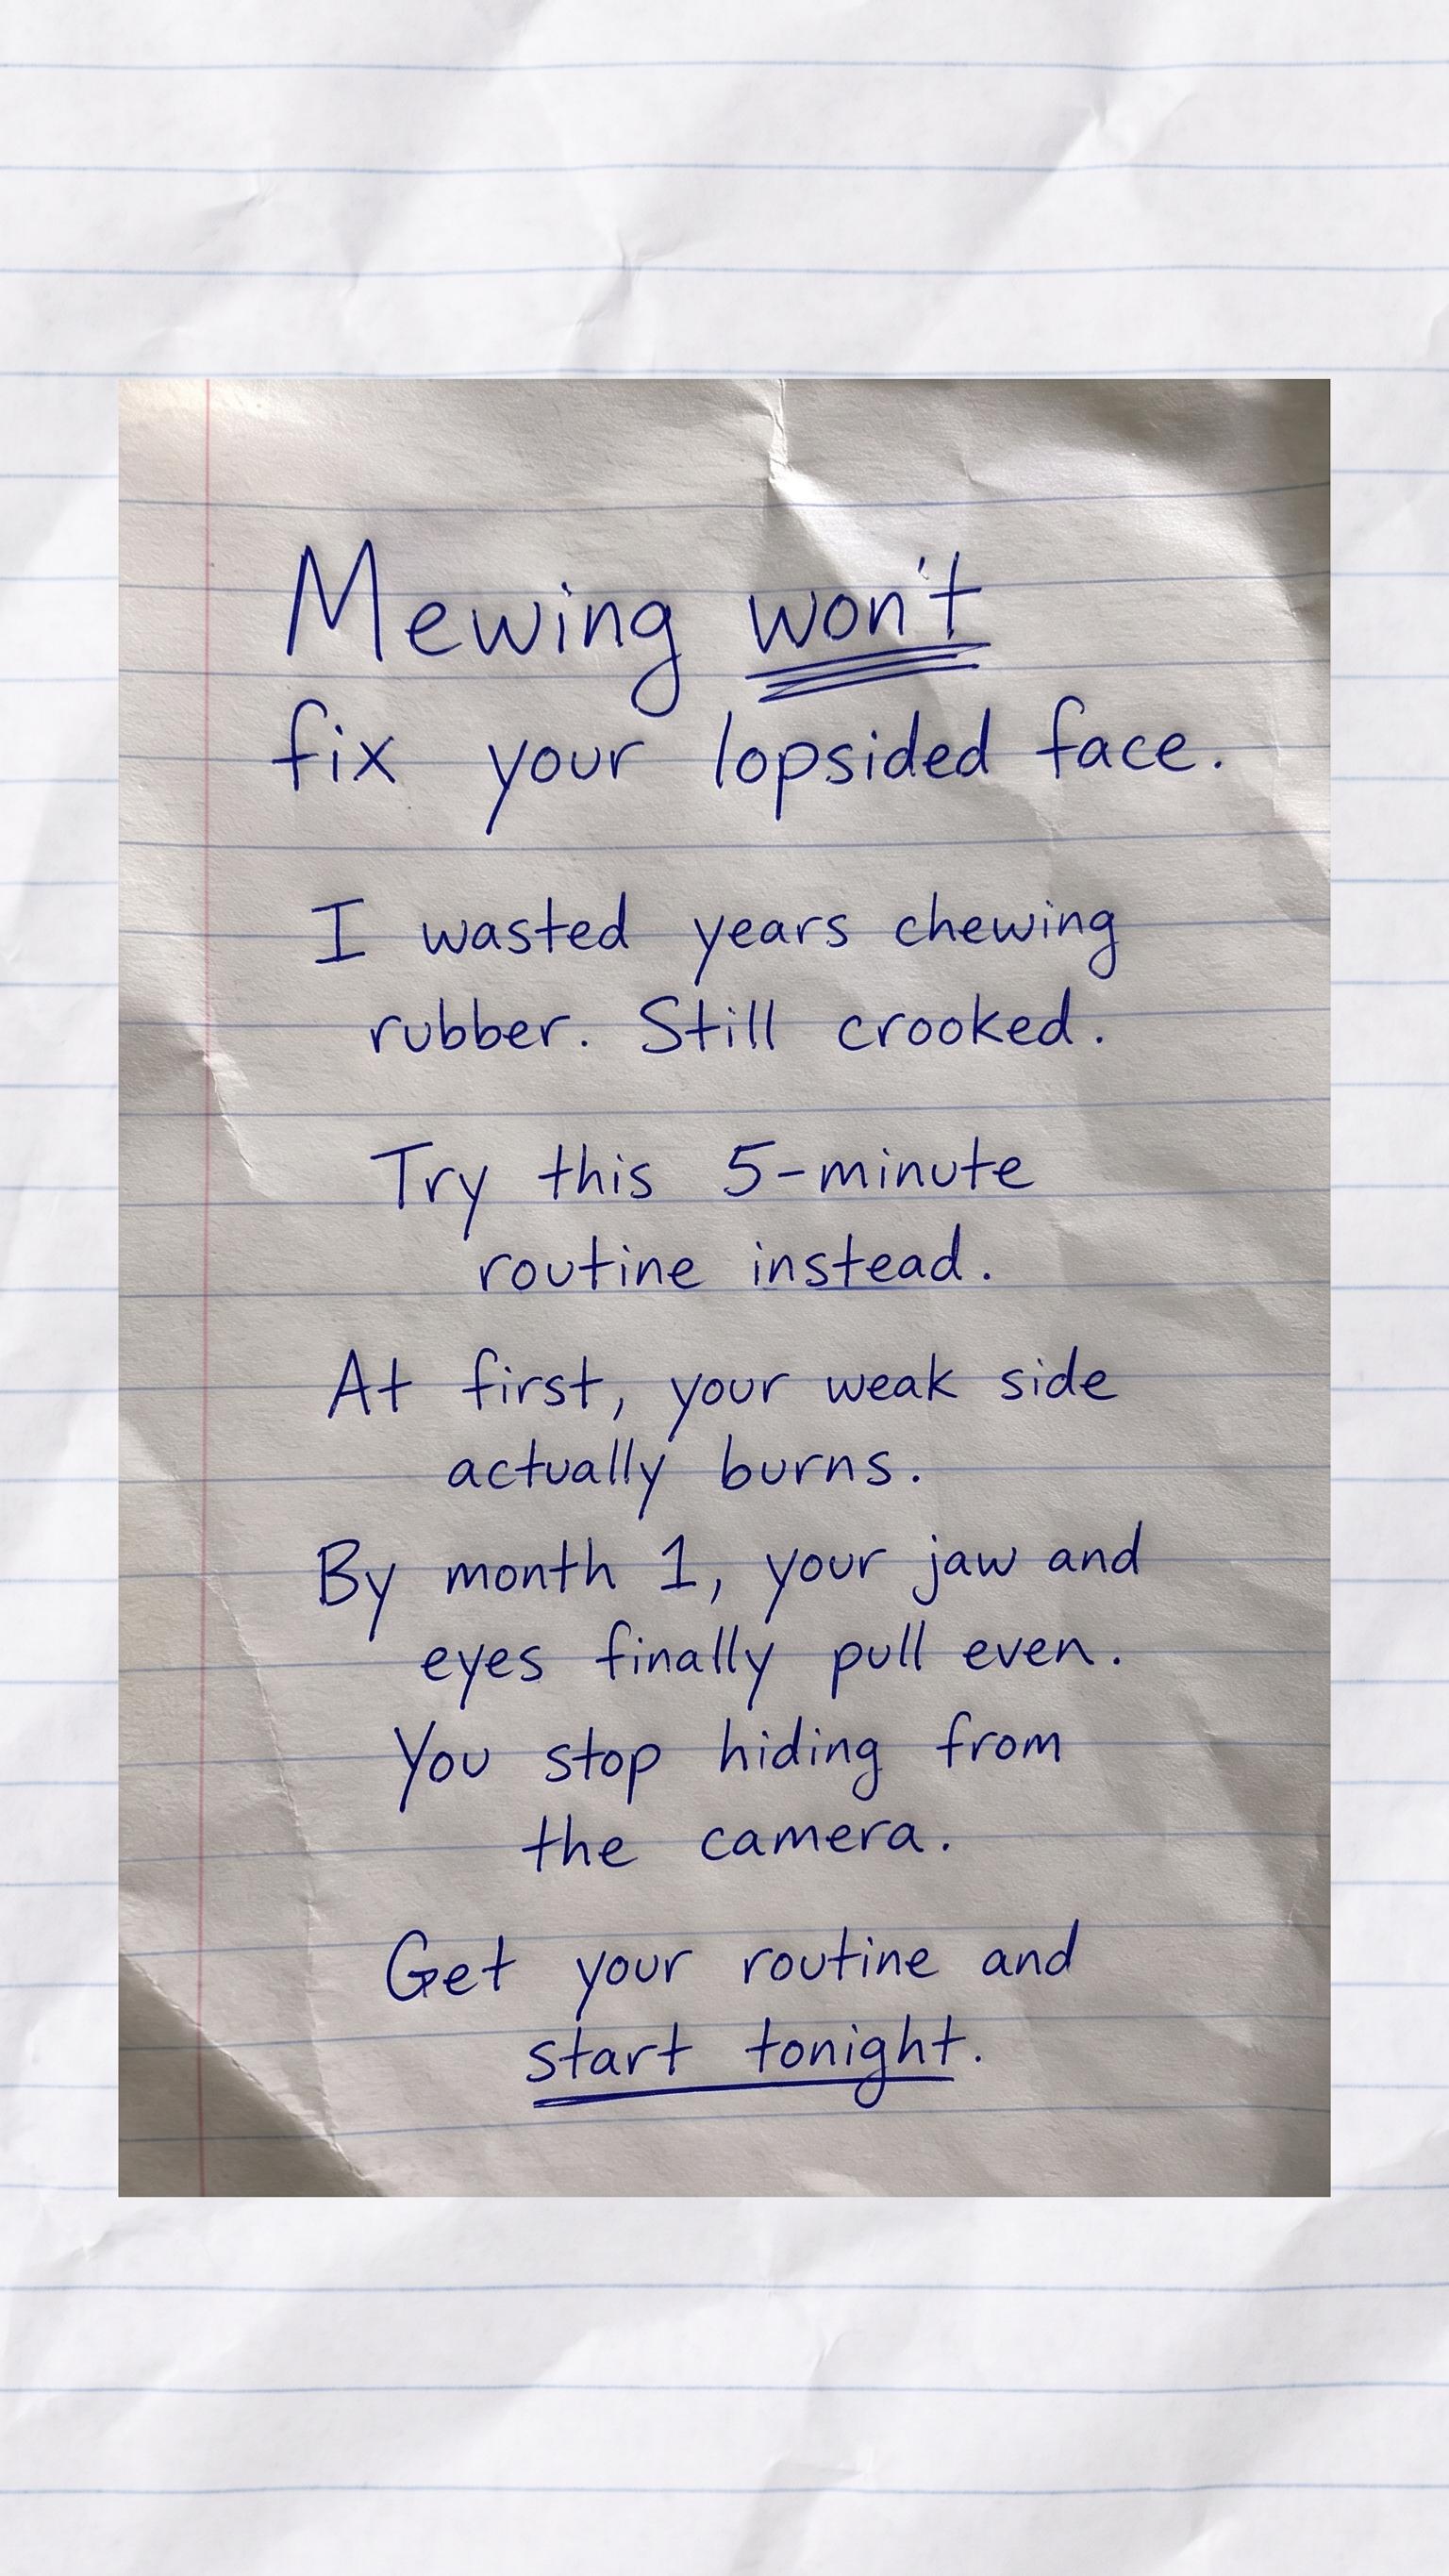 Mewing won't
fix your lopsided face.
I wasted years chewing
rubber. Still crooked.
Try this 5-minute
routine instead.
At first, your weak side
actually burns.
By month 1, your jaw and
eyes finally pull even.
You stop hiding from
the camera.
Get your routine and
start tonight.